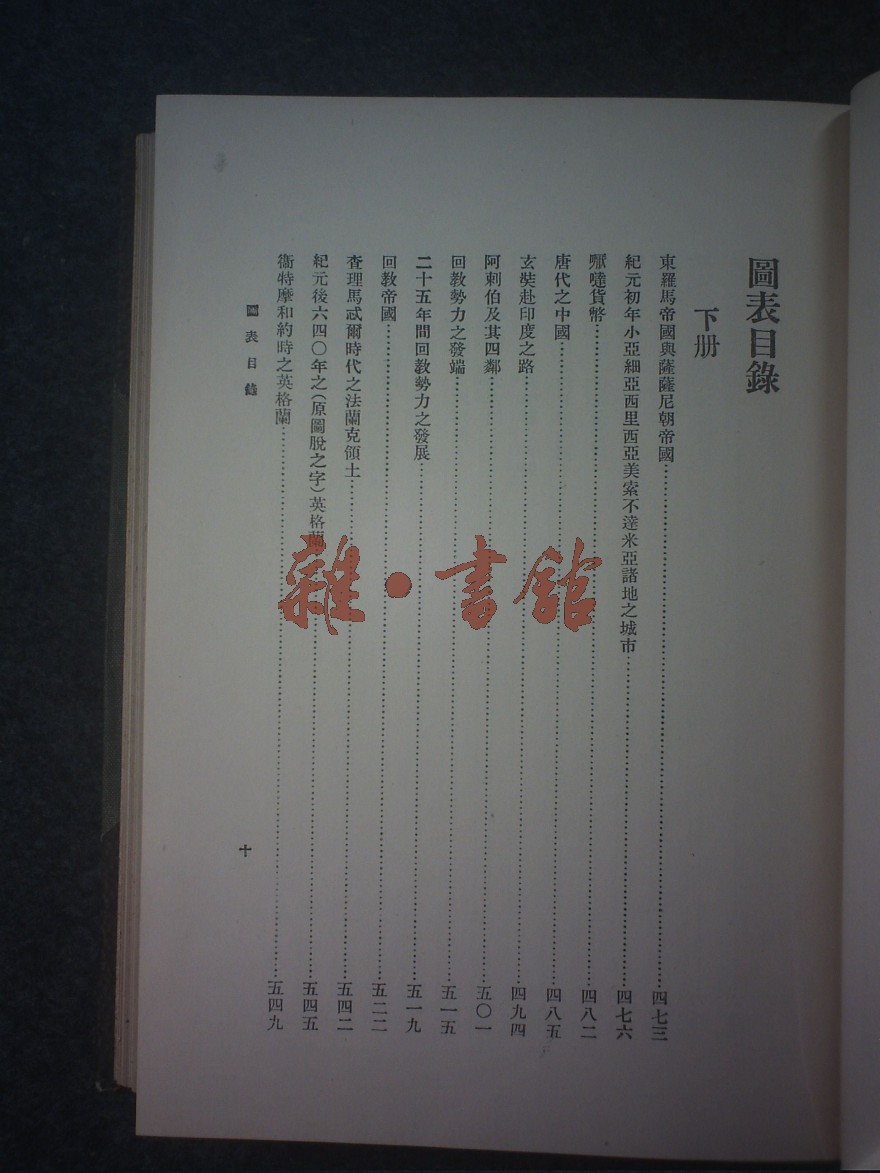 圖表目錄
下册
東羅馬帝國與薩薩尼朝帝國……四七三
紀元初年小亞細亞西里西亞美索不達米亞諸地之城市……四七六
嚈噠貨幣……四八二
唐代之中國……四八五
玄奘赴印度之路……四九四
阿剌伯及其四鄰……五〇一
回教勢力之發端……五一五
二十五年間回教勢力之發展……五一九
回教帝國……五二二
查理馬忒爾時代之法蘭克領土……五四二
紀元後六四〇年之(原圖脫之字)英格蘭……五四五
衞特摩和約時之英格蘭……五四九
圖表目錄
十
雜·書館